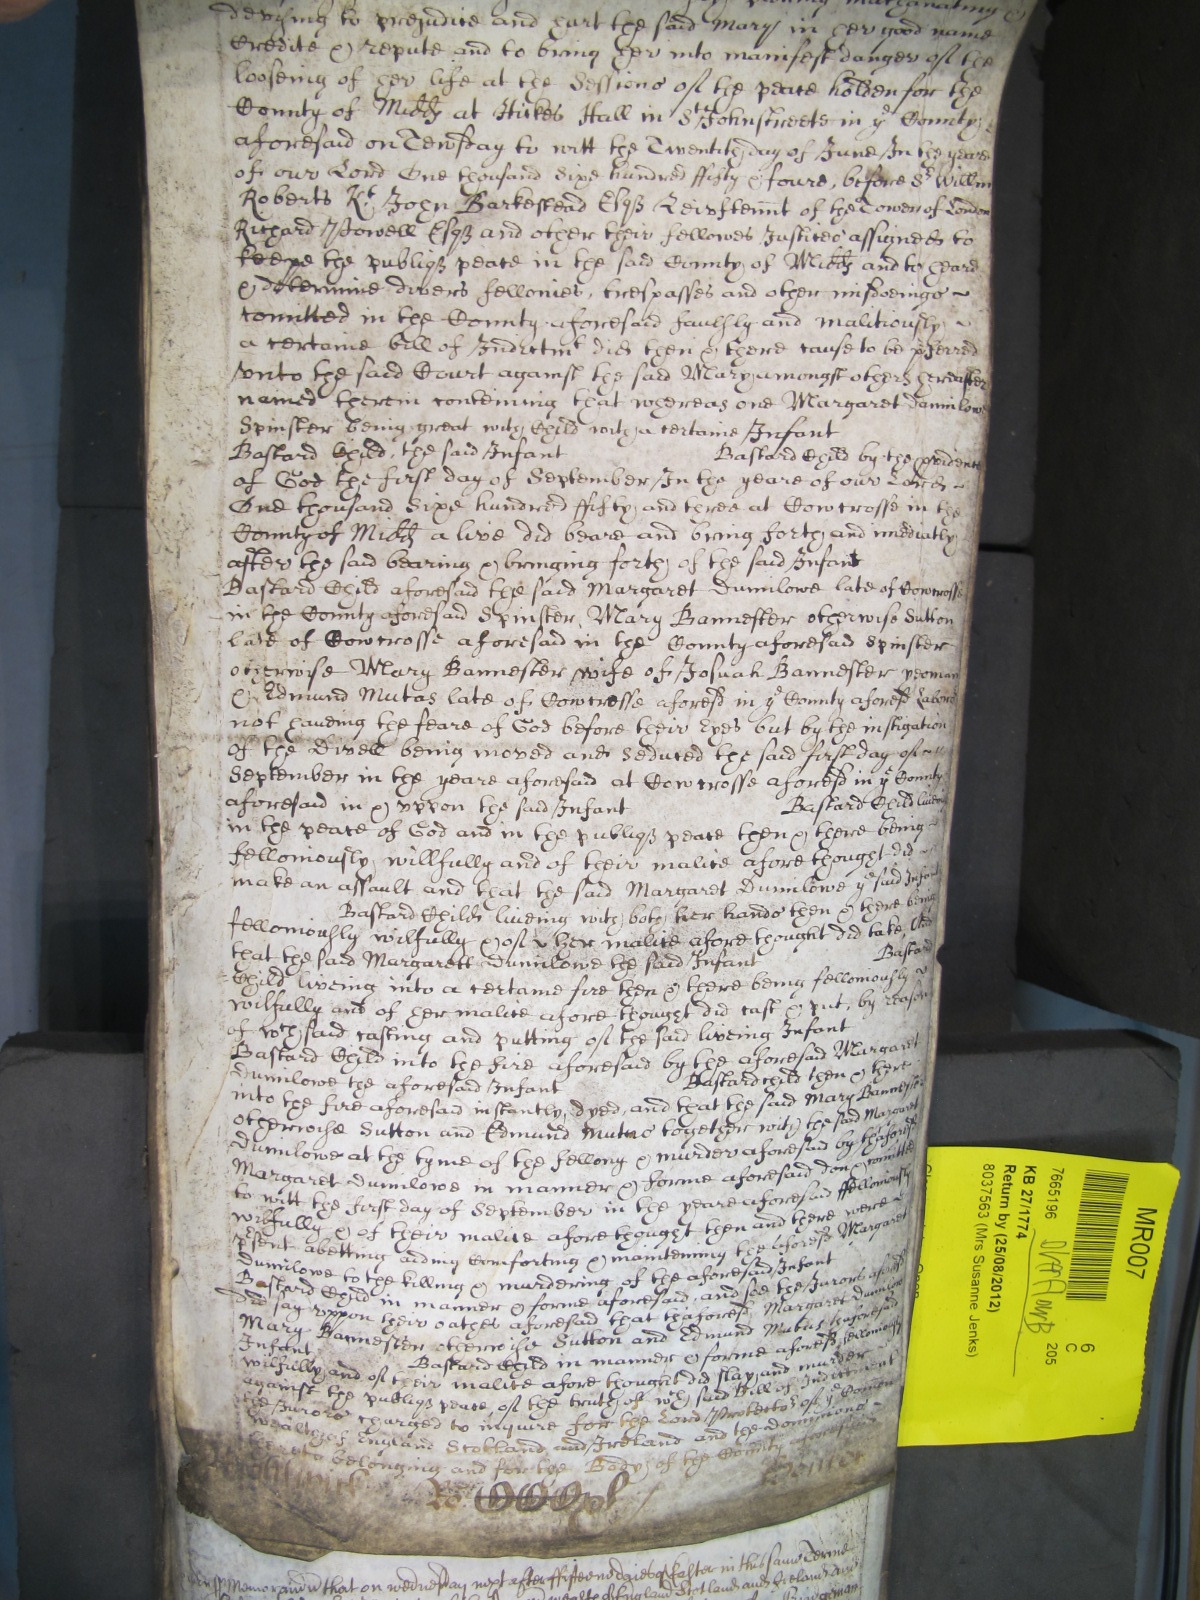 devysing to prejudice and hurt the said Mary in her good name
Creditte & repute and to bring her into manifest danger of the
looseing of her life at the Sessions of the peace holden for the
County of Midd at Hickes Hall in St Johnstreete in ye County
aforesaid on Tewsday to witt the Twentith day of June In the yeare
of our Lord One thousand Sixe hundred ffifty & foure, before Sr Willm
Roberts Kt John Barkestead Esqs Leivftennt of the Tower of London
Richard Powell Esqs and other their fellowes Justices assigned to
keepe the publiqs peace in the said County of Midd and to heard
& determine divers fellonies, trespasses and other misdoeings
comitted in the County aforesaid faulsly and malitiously
a certaine bill of Indictmt did then & there cause to be pferred
unto the said Court against the said Mary amongst others hereafter
named therein conteining that whereas one Margaret Dumilowe
Spinster being great with Child with a certaine Infant
Bastard Child, the said Infant Bastard Child by the pvidence
of God the first day of September In the yeare of our Lord
One thousand Sixe hundred ffifty and three at Cowcrosse in the
County of Midd a live did beare and bring forth and imediatly
after the said bearing & bringing forth of the said Infant
Bastard Child aforesaid the said Margaret Dumilowe late of Cowcrosse
in the County aforesaid Spinster, Mary Bannester otherwise Sutton
late of Cowcrosse aforesaid in the County aforesaid Spinster
otherwise Mary Bannester wife of Josuah Bannester yeoman
& Edmund Mutas late of Cowcrosse aforesd in ye County aforesd Labore
not haveing the feare of God before their Eyes but by the instigation
of the Divell being moved and seduced the said first day of
September in the yeare aforesaid at Cowcrosse aforesd in ye County
aforesaid in & uppon the said Infant Bastard Child liveing
in the peace of God and in the publiqs peace then & there being
felloniously, willfully and of their malice afore thought did
make an assault and that the said Margaret Dumilowe ye said Infant
Bastard Child liveing with both her hands then & there being
felloniously wilfully & of her malice afore thought did take, And
that the said Margarett Dumilowe the said Infant Bastard
Child liveing into a certaine fire then & there being felloniously
wilfully and of her malice afore thought did cast & put, by reason
of wch said casting and putting of the said liveing Infant
Bastard Child into the fire aforesaid by the aforesaid Margaret
Dumilowe the aforesaid Infant Bastard child then & there
into the fire aforesaid instantly dyed, and that the said Mary Bannester
otherwise Sutton and Edmund Mutas together with the said Margaret
Dumilowe at the tyme of the fellony & murder aforesaid by thaforesd
Margaret Dumilowe in manner & forme aforesaid don & comitted
to witt the first day of September in the yeare aforesaid ffelloniously
wilfully & of their malice afore thought then and there were
psent abetting aiding Comforting & mainteining the aforesd Margaret
Dumilowe to the killing & murdering of the aforesaid Infant
Bastard Child in manner & forme aforesaid, and soe the Jurors aforesd
did say uppon their oathes aforesaid that thaforesd Margaret Dumilowe
Mary Bannester otherwise Sutton and Edmund Mutas thaforesaid
Infant Bastard Child in manner & forme aforesd felloniously
wilfully and of their malice afore thought did slay and murder
against the publiqs peace, of the truth of wch said Bill of Indictment
the Jurors charged to inquire for the Lord Protector of ye Comon
wealth of England Scotland and Ireland and the dominions
thereto belonging and for the Body of the County aforesaid
Memorand that on wednesday next after fifteene daies of Easter in this same Terme
of England Scotland and Ireland and
MR007
6
C
205
7665196
KB 27/1774
Return by (25/08/2012)
8037563 (Mrs Susanne Jenks)